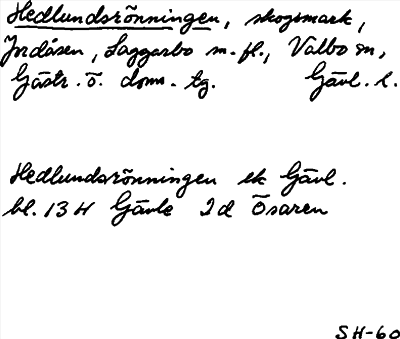 Hedlundsrönningen, skogsmark,
Jrdåsen, Laggarbo m. fl., Valbo sn,
Gästr. ö. dom. tg. Gävl. l.
Hedlundsrönningen ek Gävl.
bl. 13 H Gävle 2 d Ösaren
SH-60